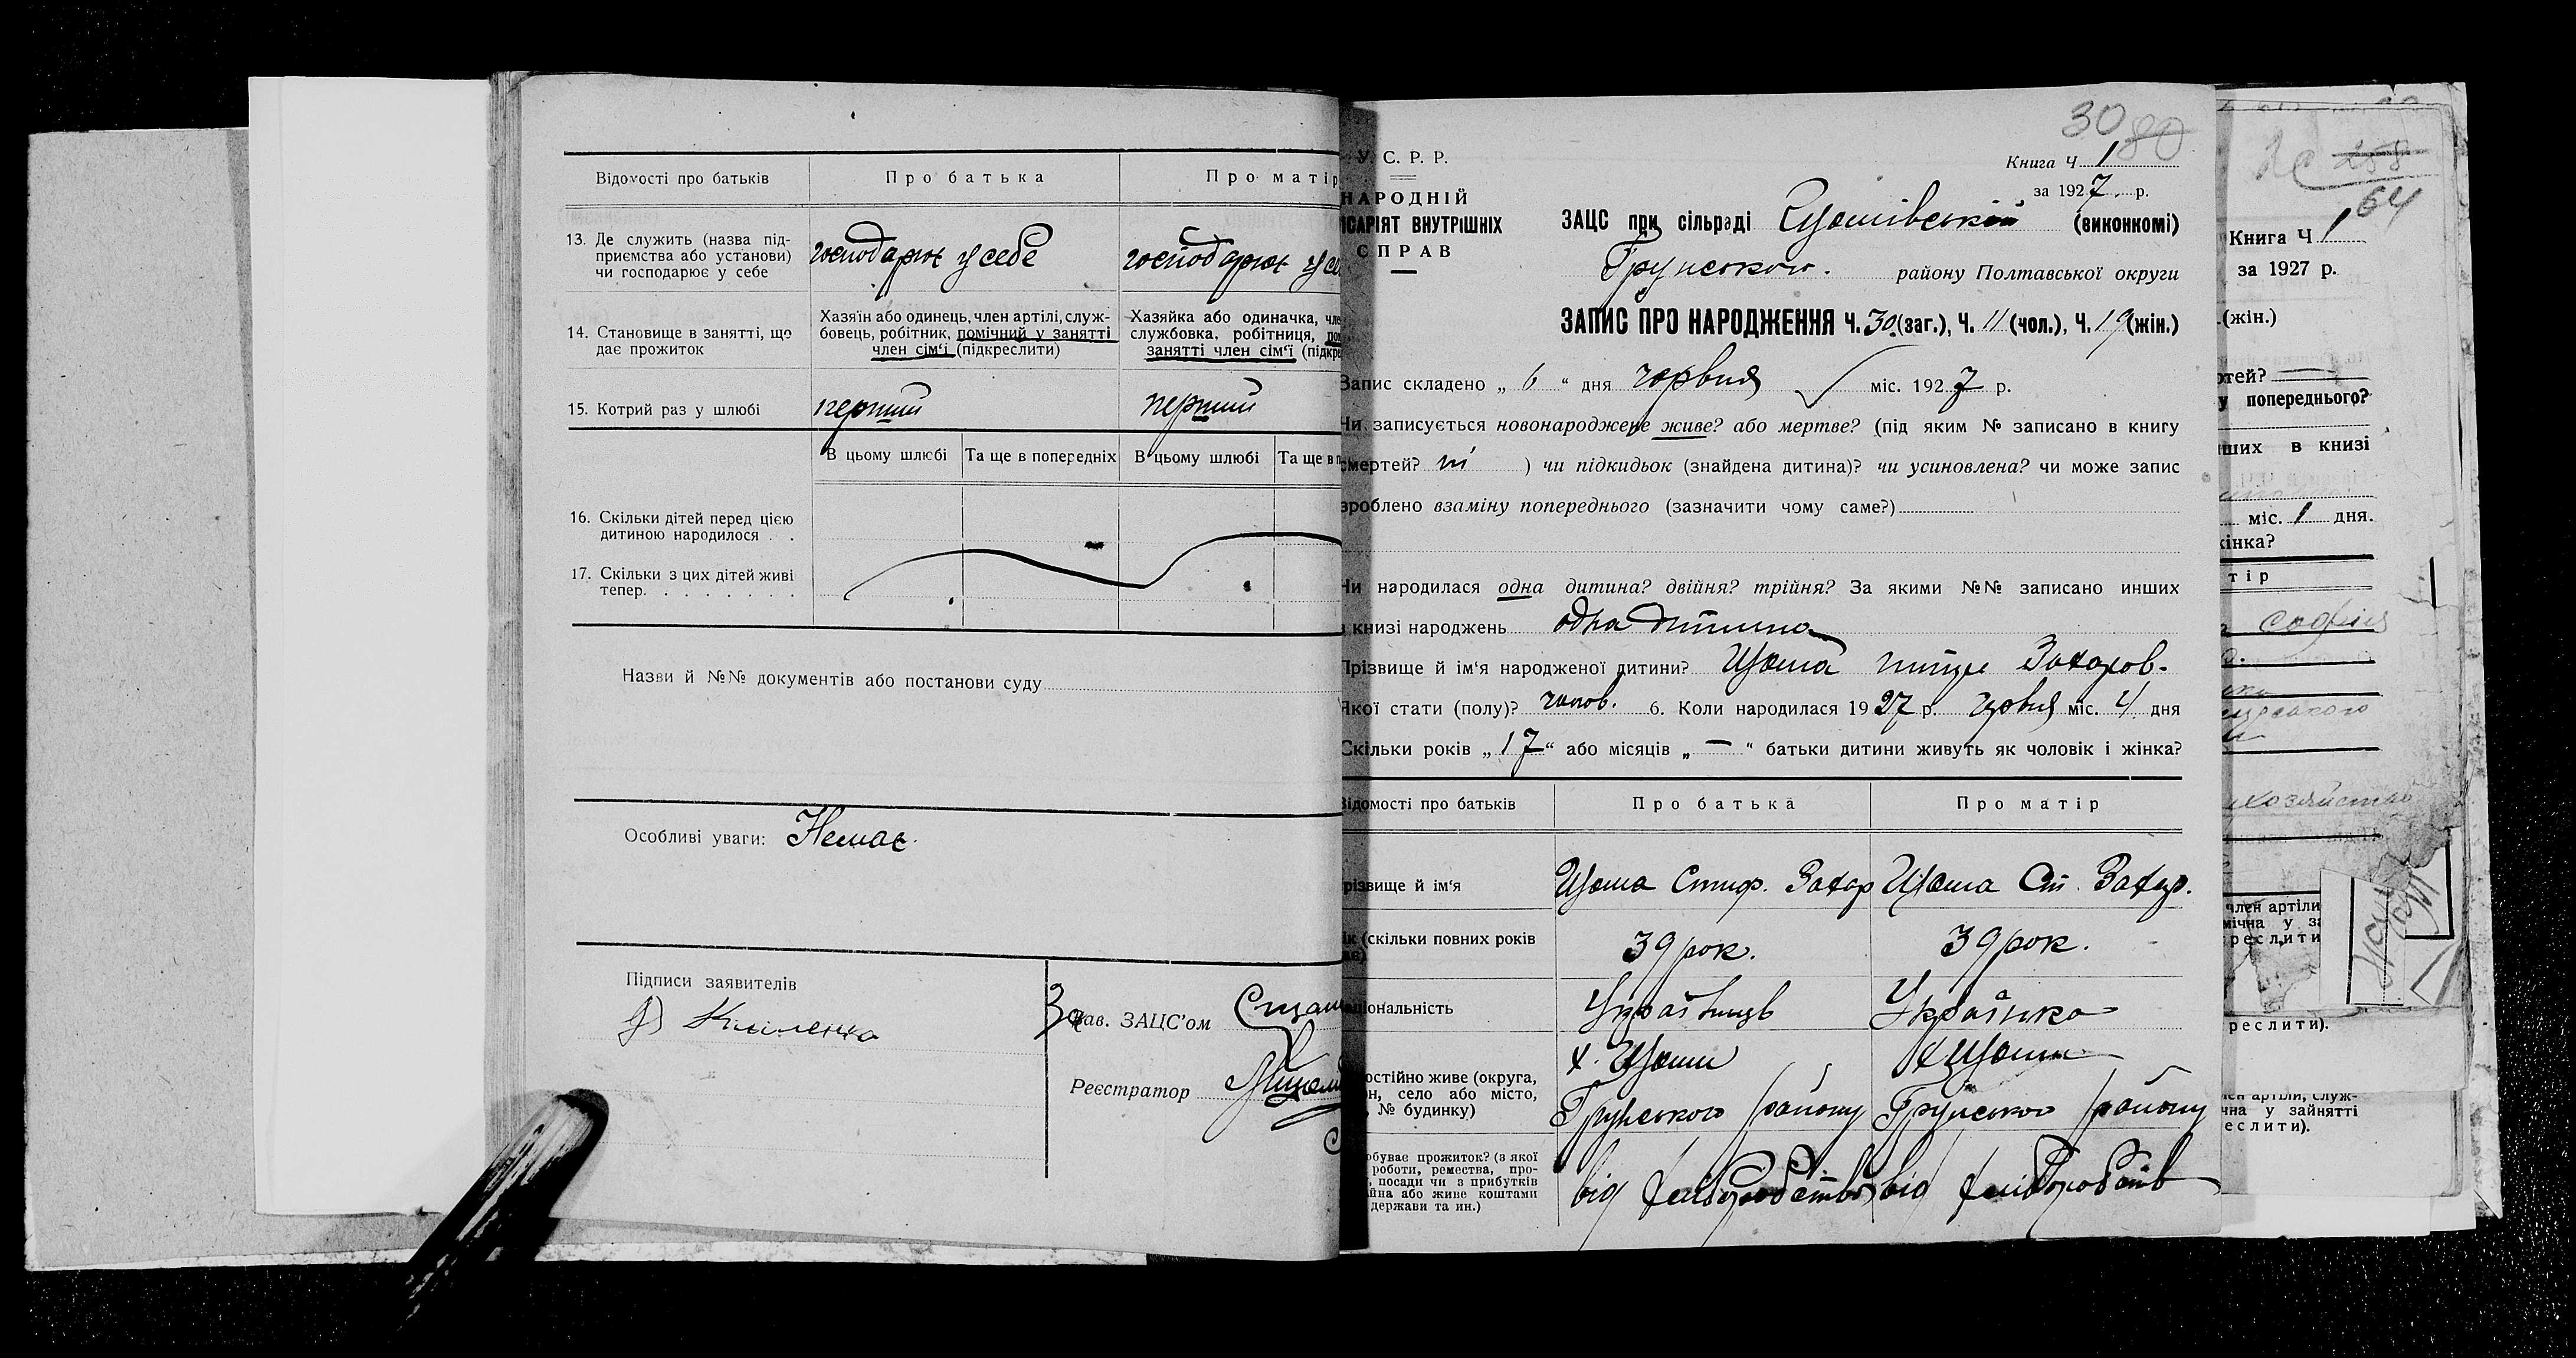 Відомості про батьків
Про батька
Про матір
13. Де служить (назва під-
приємства або установи)
чи господарює у себе
господарює у себе
господарює у се
14. Становище в занятті, що
дає прожиток
Хазяїн або одинець, член артілі, служ-
бовець, робітник, помічний у занятті
член сім'ї (підкреслити)
Хазяйка або одиначка, чле
службовка, робітниця, по
занятті член сім'ї (підкре
15. Котрий раз у шлюбі
перший
перший
В цьому шлюбі
Та ще в попередніх
В цьому шлюбі
Та ще в п
16. Скільки дітей перед цією
дитиною народилося . .
17. Скільки з цих дітей живі
тепер. . . . . . . .
Назви й №№ документів або постанови суду
Особливі уваги: Немає.
Підписи заявителів
Зав. ЗАЦС'ом
Реєстратор
30 80
У. С. Р. Р.
Книга Ч 1
за 1927 р.
НАРОДНІЙ
ІСАРІЯТ ВНУТРІШНІХ
СПРАВ
ЗАЦС при сільраді (виконкомі)
Грунського. району Полтавської округи
ЗАПИС ПРО НАРОДЖЕННЯ Ч. 30 (заг.), Ч. 11 (чол.), Ч. 19 (жін.)
Запис складено „ 6 “ дня червня міс. 1927 р.
Чи записується новонароджене живе? або мертве? (під яким № записано в книгу
смертей? ні ) чи підкидьок (знайдена дитина)? чи усиновлена? чи може запис
зроблено взаміну попереднього (зазначити чому саме?)
Чи народилася одна дитина? двійня? трійня? За якими №№ записано инших
в книзі народжень одна дитина
Прізвище й ім'я народженої дитини? Цьома Захаров.
Якої стати (полу)? чолов. 6. Коли народилася 1927 р. червня міс. 4 дня
Скільки років „ 17 “ або місяців „ — “ батьки дитини живуть як чоловік і жінка?
Відомості про батьків
Про батька
Про матір
різвище й ім'я
Цьома Захар
Цьома Захар.
ік (скільки повних років
39 рок.
39 рок.
ціональність
Українець
Українка
остійно живе (округа,
он, село або місто,
№ будинку)
х. Цьоми
Грунського району
х. Цьоми
Грунського району
обуває прожиток? (з якої
роботи, ремества, про-
, посади чи з прибутків
йна або живе коштами
держави та ин.)
від хліборобства
від хліборобств
258
64
Книга Ч 1
за 1927 р.
(жін.)
ртей?
у попереднього?
нших в книзі
міс. 1 дня.
жінка?
тір
софія
член артіли
мічна у за
креслити
реслити).
лен артіли, служ-
чна у зайнятті
еслити).